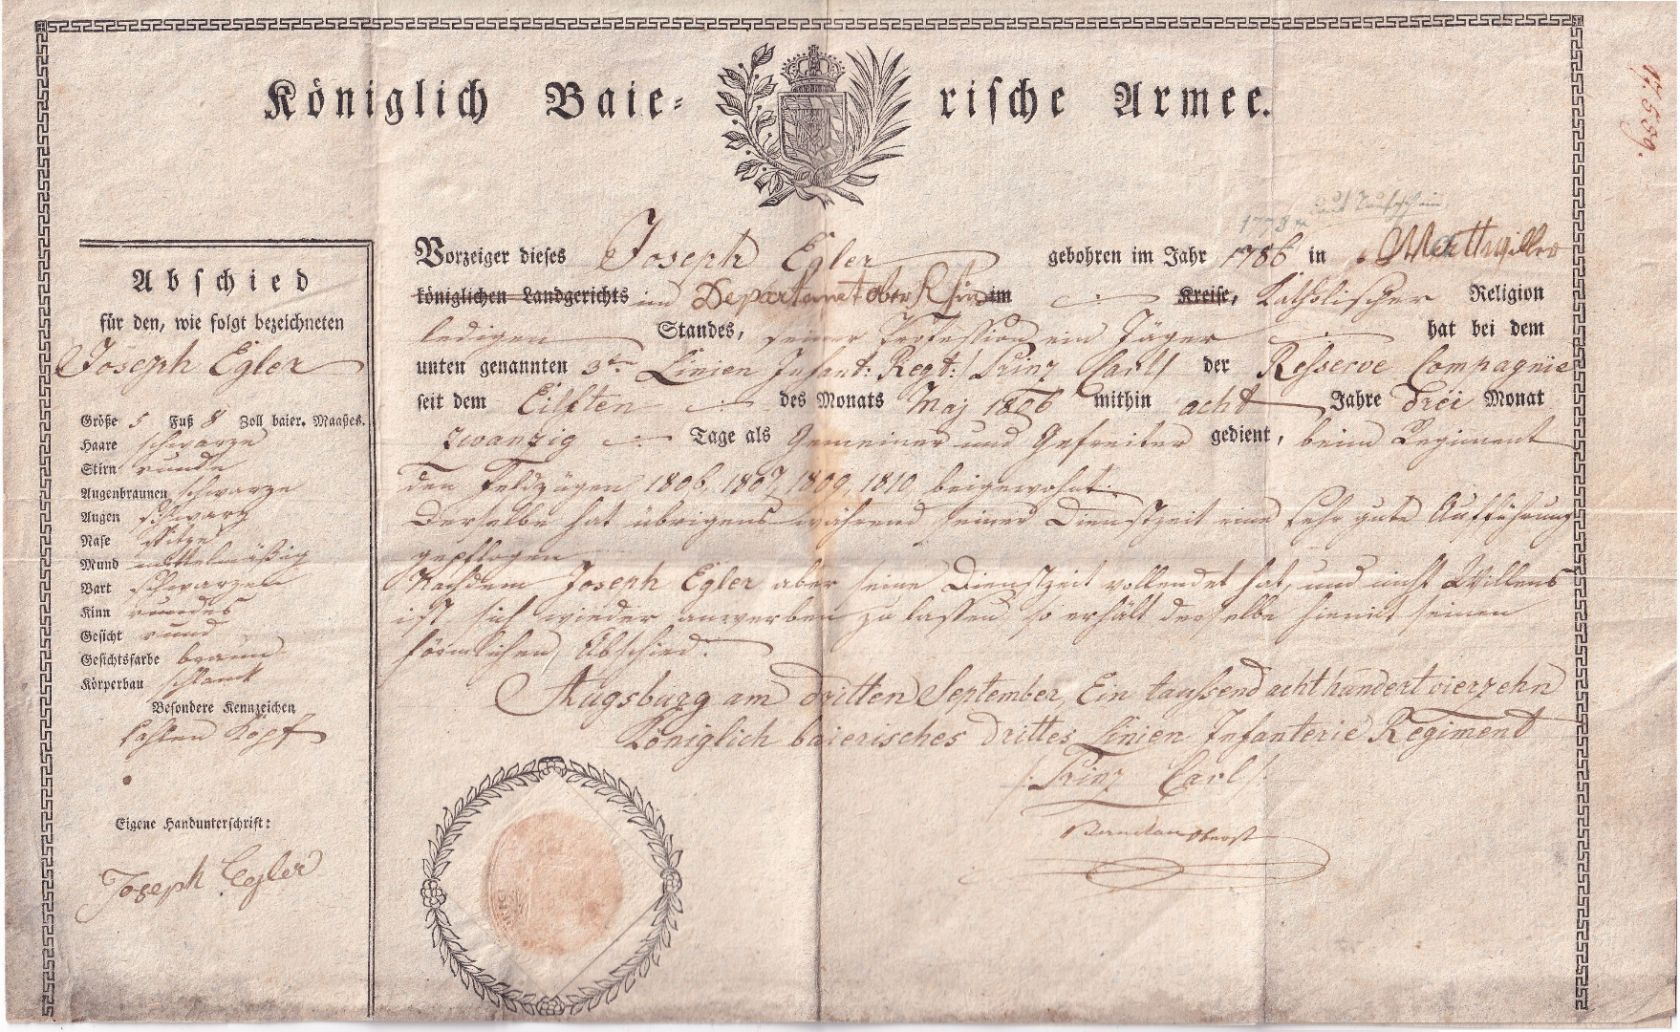 Königlich Baie= rische Armee.
17,559.
Abschied
für den, wie folgt bezeichneten
Joseph Egler
Größe 5 Fuß 8 Zoll baier. Maaßes.
Haare schwarze
Stirn runde
Augenbraunen schwarze
Augen schwarz
Nase spitze
Mund mittelmäßig
Bart schwarzen
Kinn rundes
Gesicht rund
Gesichtsfarbe braun
Körperbau schlank
Besondere Kennzeichen
kahlen Kopf
Eigene Handunterschrift:
Joseph Egler
1778 laut Taufschein
Vorzeiger dieses Joseph Egler gebohren im Jahr 1786 in
königlichen Landgerichts im Departement ober Rhin im Kreise, katholischer Religion
ledigen Standes, seiner Profession ein Jäger hat bei dem
unten genannten 3ten Linien Infant: Regt: Prinz Carl der Resserve Compagnie
seit dem Eilften des Monats Maj 1806 mithin acht Jahre drei Monat
zwanzig Tage als Gemeiner und Gefreiter gedient, beim Regiment
den Feldzügen 1806, 1807, 1809, 1810 beigewohnt.
Derselbe hat übrigens während seiner Dienstzeit eine sehr gute Aufführung
gepflogen
Nachdem Joseph Egler aber seine Dienstzeit vollendet hat, und nicht Willens
ist, sich wieder anwerben zu lassen so erhält derselbe hiemit seinen
förmlichen Abschied.
Augsburg am dritten September, Ein taussend acht hundert vierzehn
Königlich baierisches drittes Linien Infanterie Regiment
/: Prinz Carl :/
Oberst